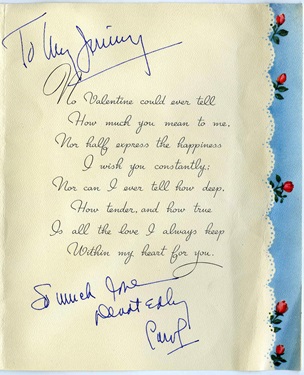 To My Jimmy
No Valentine could ever tell
How much you mean to me,
Nor half express the happiness
I wish you constantly;
Nor can I ever tell how deep,
How tender, and how true
Is all the love I always keep
Within my heart for you.
So much love
Carol